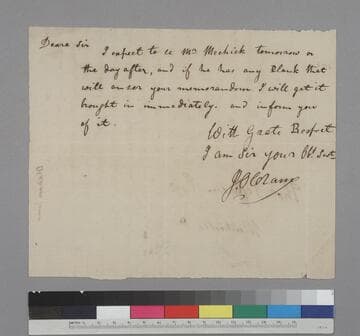 Deare Sir
I expect to ce Mr. Mechick tomorrow or
the day after, and if he has any Plank that
will ansor your memorandom I will get it
brought in immediately. and inform you
of it.
With Grate Respect
I am Sir your Obt. Sert.